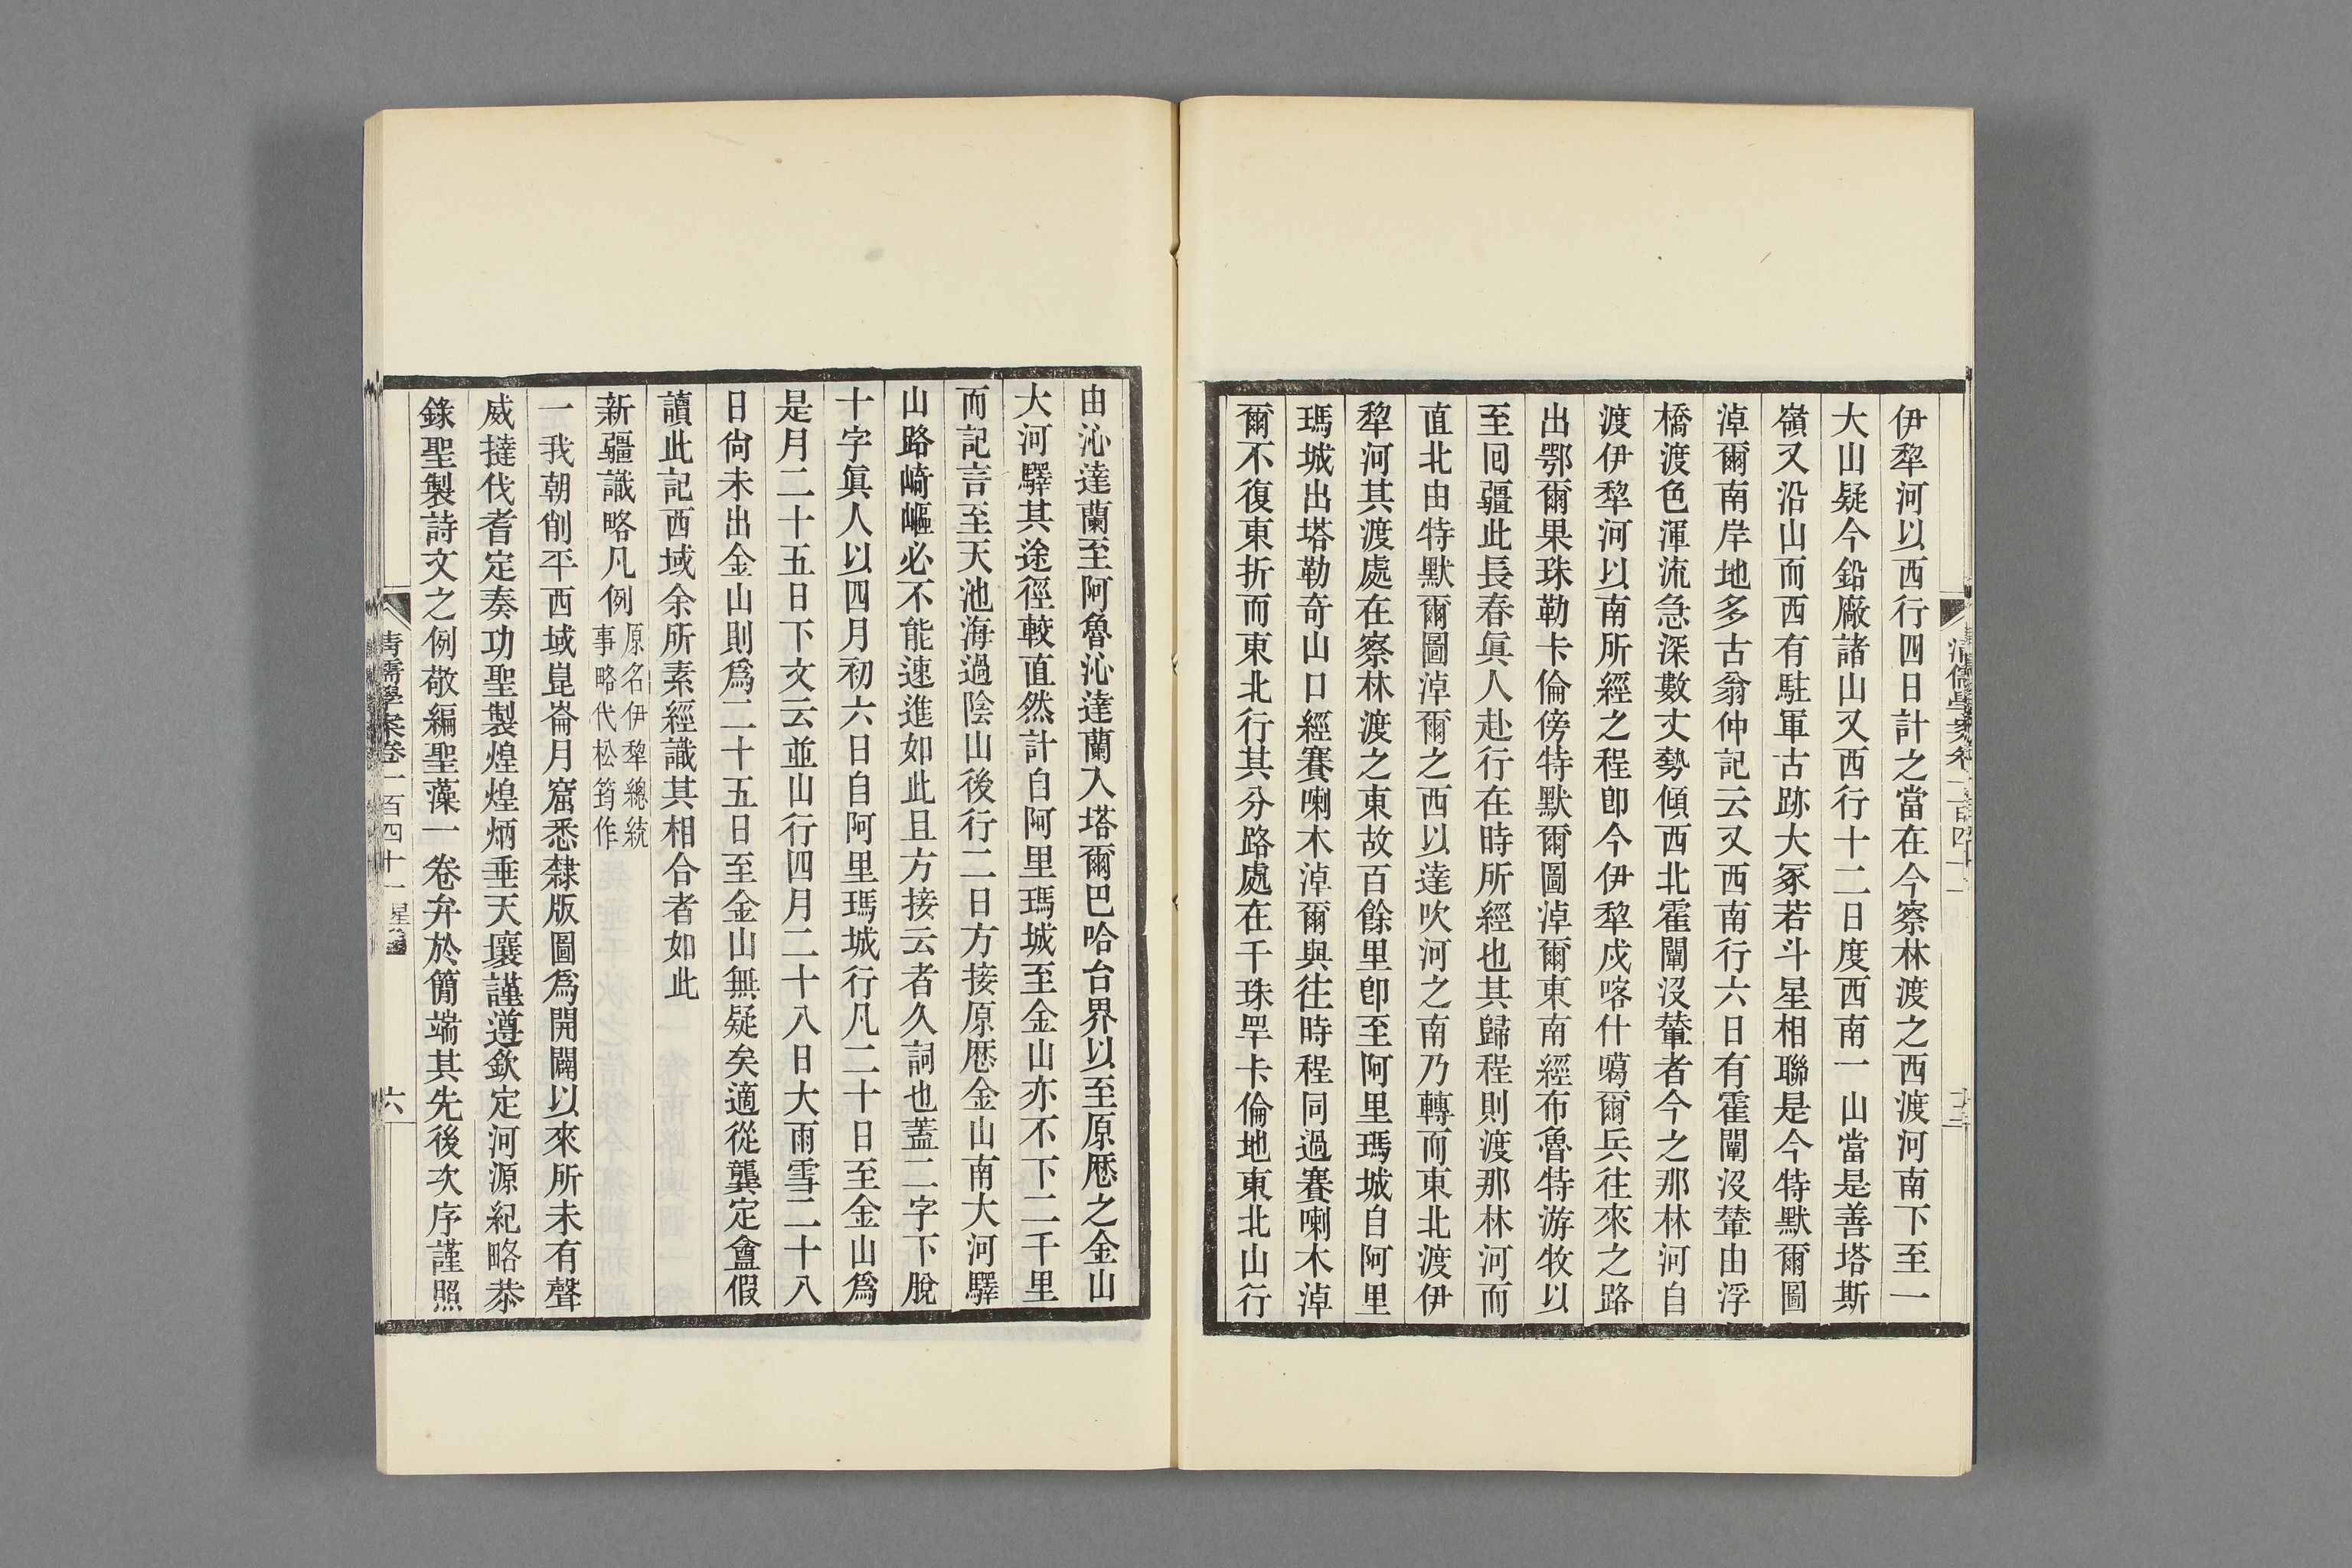 伊犂河以西行四日計之當在今察林渡之西渡河南下至一
大山疑今鉛廠諸山又西行十二日度西南一山當是善塔斯
嶺又沿山而西有駐軍古跡大冢若斗星相聯是今特默爾圖
淖爾南岸地多古翁仲記云又西南行六日有霍闡沒輦由浮
橋渡色渾流急深數丈勢傾西北霍闡沒輦者今之那林河自
渡伊犂河以南所經之程卽今伊犂戍喀什噶爾兵往來之路
出鄂爾果珠勒卡倫傍特默爾圖淖爾東南經布魯特游牧以
至回疆此長春眞人赴行在時所經也其歸程則渡那林河而
直北由特默爾圖淖爾之西以達吹河之南乃轉而東北渡伊
犂河其渡處在察林渡之東故百餘里卽至阿里瑪城自阿里
瑪城出塔勒奇山口經賽喇木淖爾與往時程同過賽喇木淖
爾不復東折而東北行其分路處在干珠罕卡倫地東北山行
由沁達蘭至阿魯沁達蘭入塔爾巴哈台界以至原歷之金山
大河驛其途徑較直然計自阿里瑪城至金山亦不下二千里
而記言至天池海過陰山後行二日方接原歷金山南大河驛
山路崎嶇必不能速進如此且方接云者久詞也蓋二字下脫
十字眞人以四月初六日自阿里瑪城行凡二十日至金山爲
是月二十五日下文云並山行四月二十八日大雨雪二十八
日尙未出金山則爲二十五日至金山無疑矣適從龔定盦假
讀此記西域余所素經識其相合者如此
新疆識略凡例原名伊犂總統事略代松筠作
一我朝削平西域崑崙月窟悉隸版圖爲開闢以來所未有聲
威撻伐耆定奏功聖製煌煌炳垂天壤謹遵欽定河源紀略恭
錄聖製詩文之例敬編聖藻一卷弁於簡端其先後次序謹照
清儒學案卷一百四十一 星
六